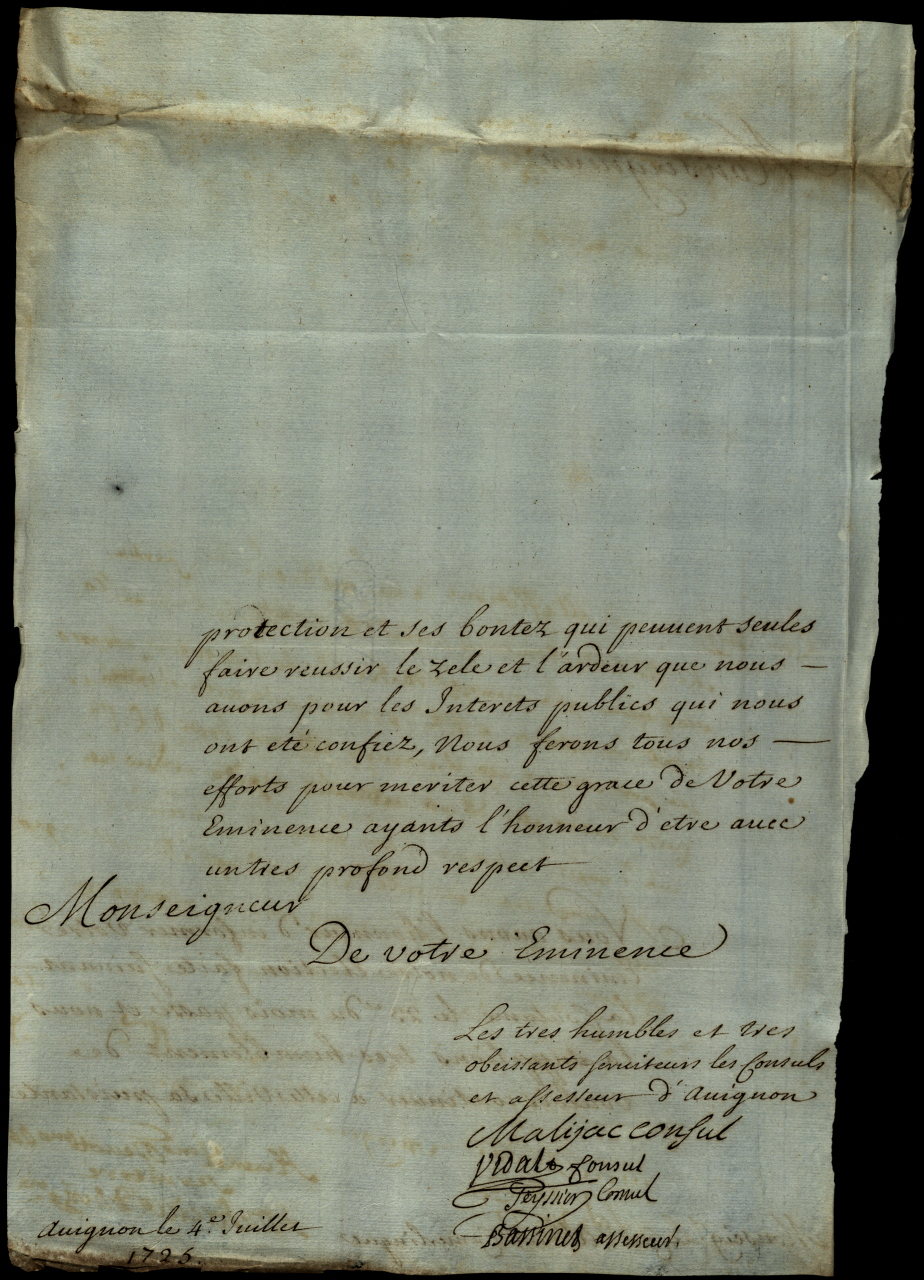 protection et ses bontez qui peuuent seules
faire reussir le zele et l'ardeur que nous —
auons pour les Interets publics qui nous
ont eté confiez, Nous ferons tous nos —
efforts pour meriter cette grace de Votre
Eminence ayants l'honneur d'etre auec
un tres profond respect
Monseigneur
De votre Eminence
Les tres humbles et tres
obeissants seruiteurs les Consuls
et assesseur d'Auignon
Malijac consul
Vidal Consul
Teyssier Consul
Bassinet assesseur.
Auignon le 4e. Juillet
1725.